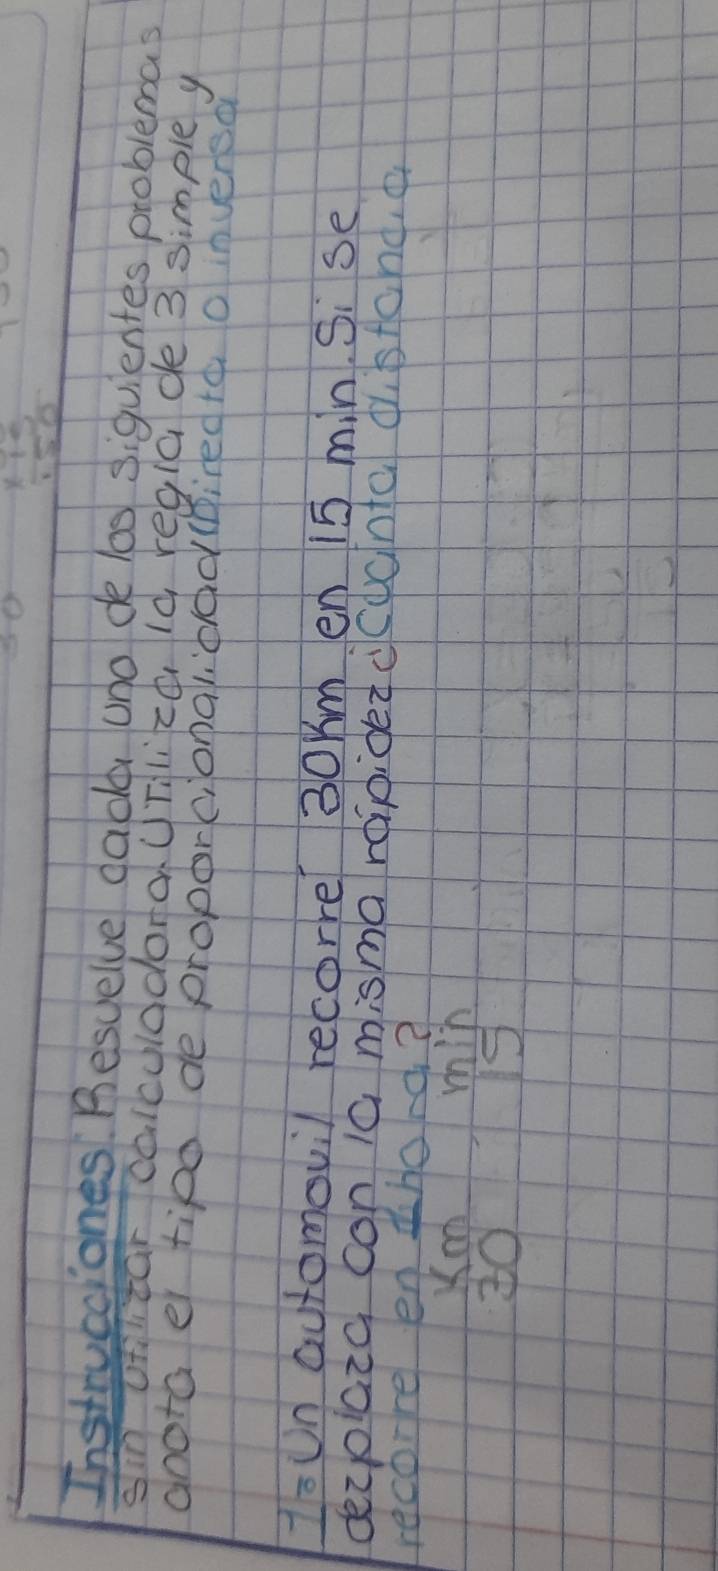 Instrucciones: Resuelve cada uno de los siguientes problemas
sin utilizar calculadora. Utiliza la regla de 3 simple y
anota el tipo de proporcionalidad (Directa o inversa
1= Un automovil recorré 30Km en 15 min. Si se
dezplaza con la misma rápidez ¿Cuánta distancia
recorre en 1 hora?
Km min
30 15